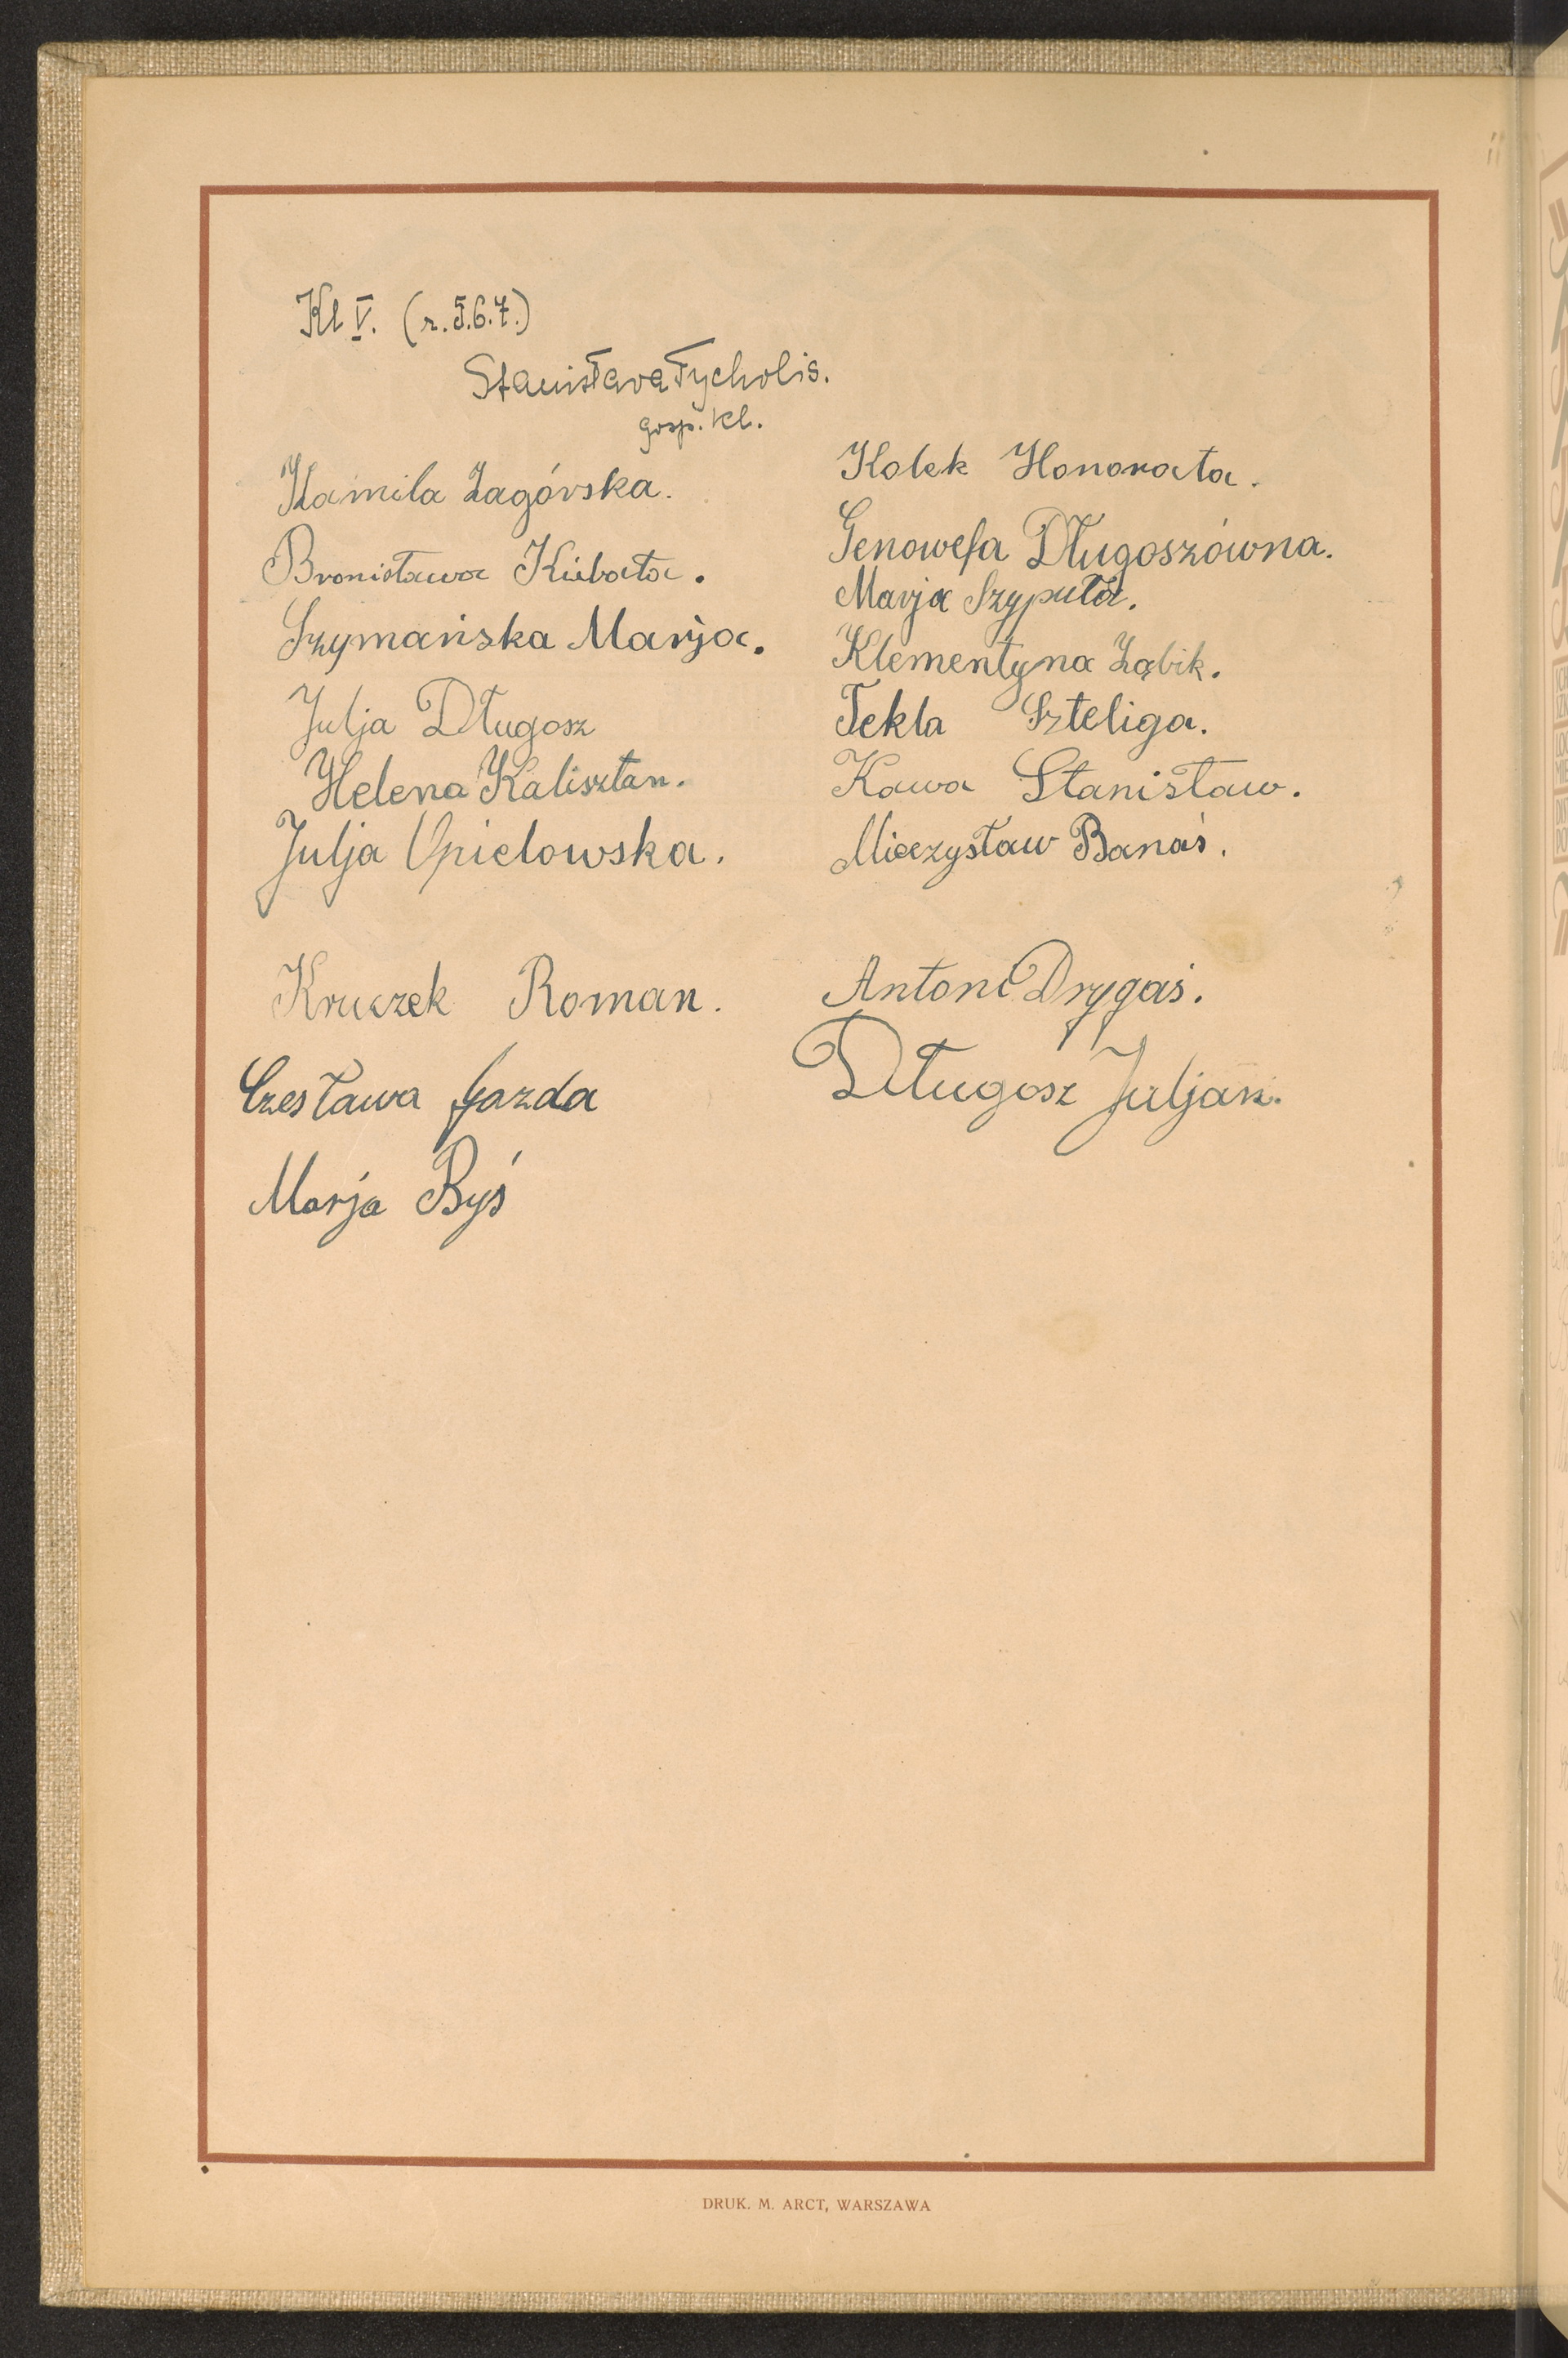 Kl V. (r. 5.6.7.)
Stanisława Tycholis.
gosp. kl.
Kamila Zagórska.
Bronisława Kubata.
Szymańska Marja.
Julja Długosz
Helena Kalisztan.
Julja Opielowska.
Kruczek Roman.
Czesława Gazda
Marja Byś
Kolek Honorata.
Genowefa Długoszówna.
Marja Szypuła.
Klementyna Ząbik.
Tekla Szteliga.
Kawa Stanisław.
Mieczysław Banaś.
Antoni Drygaś.
Długosz Juljan.
DRUK. M. ARCT, WARSZAWA